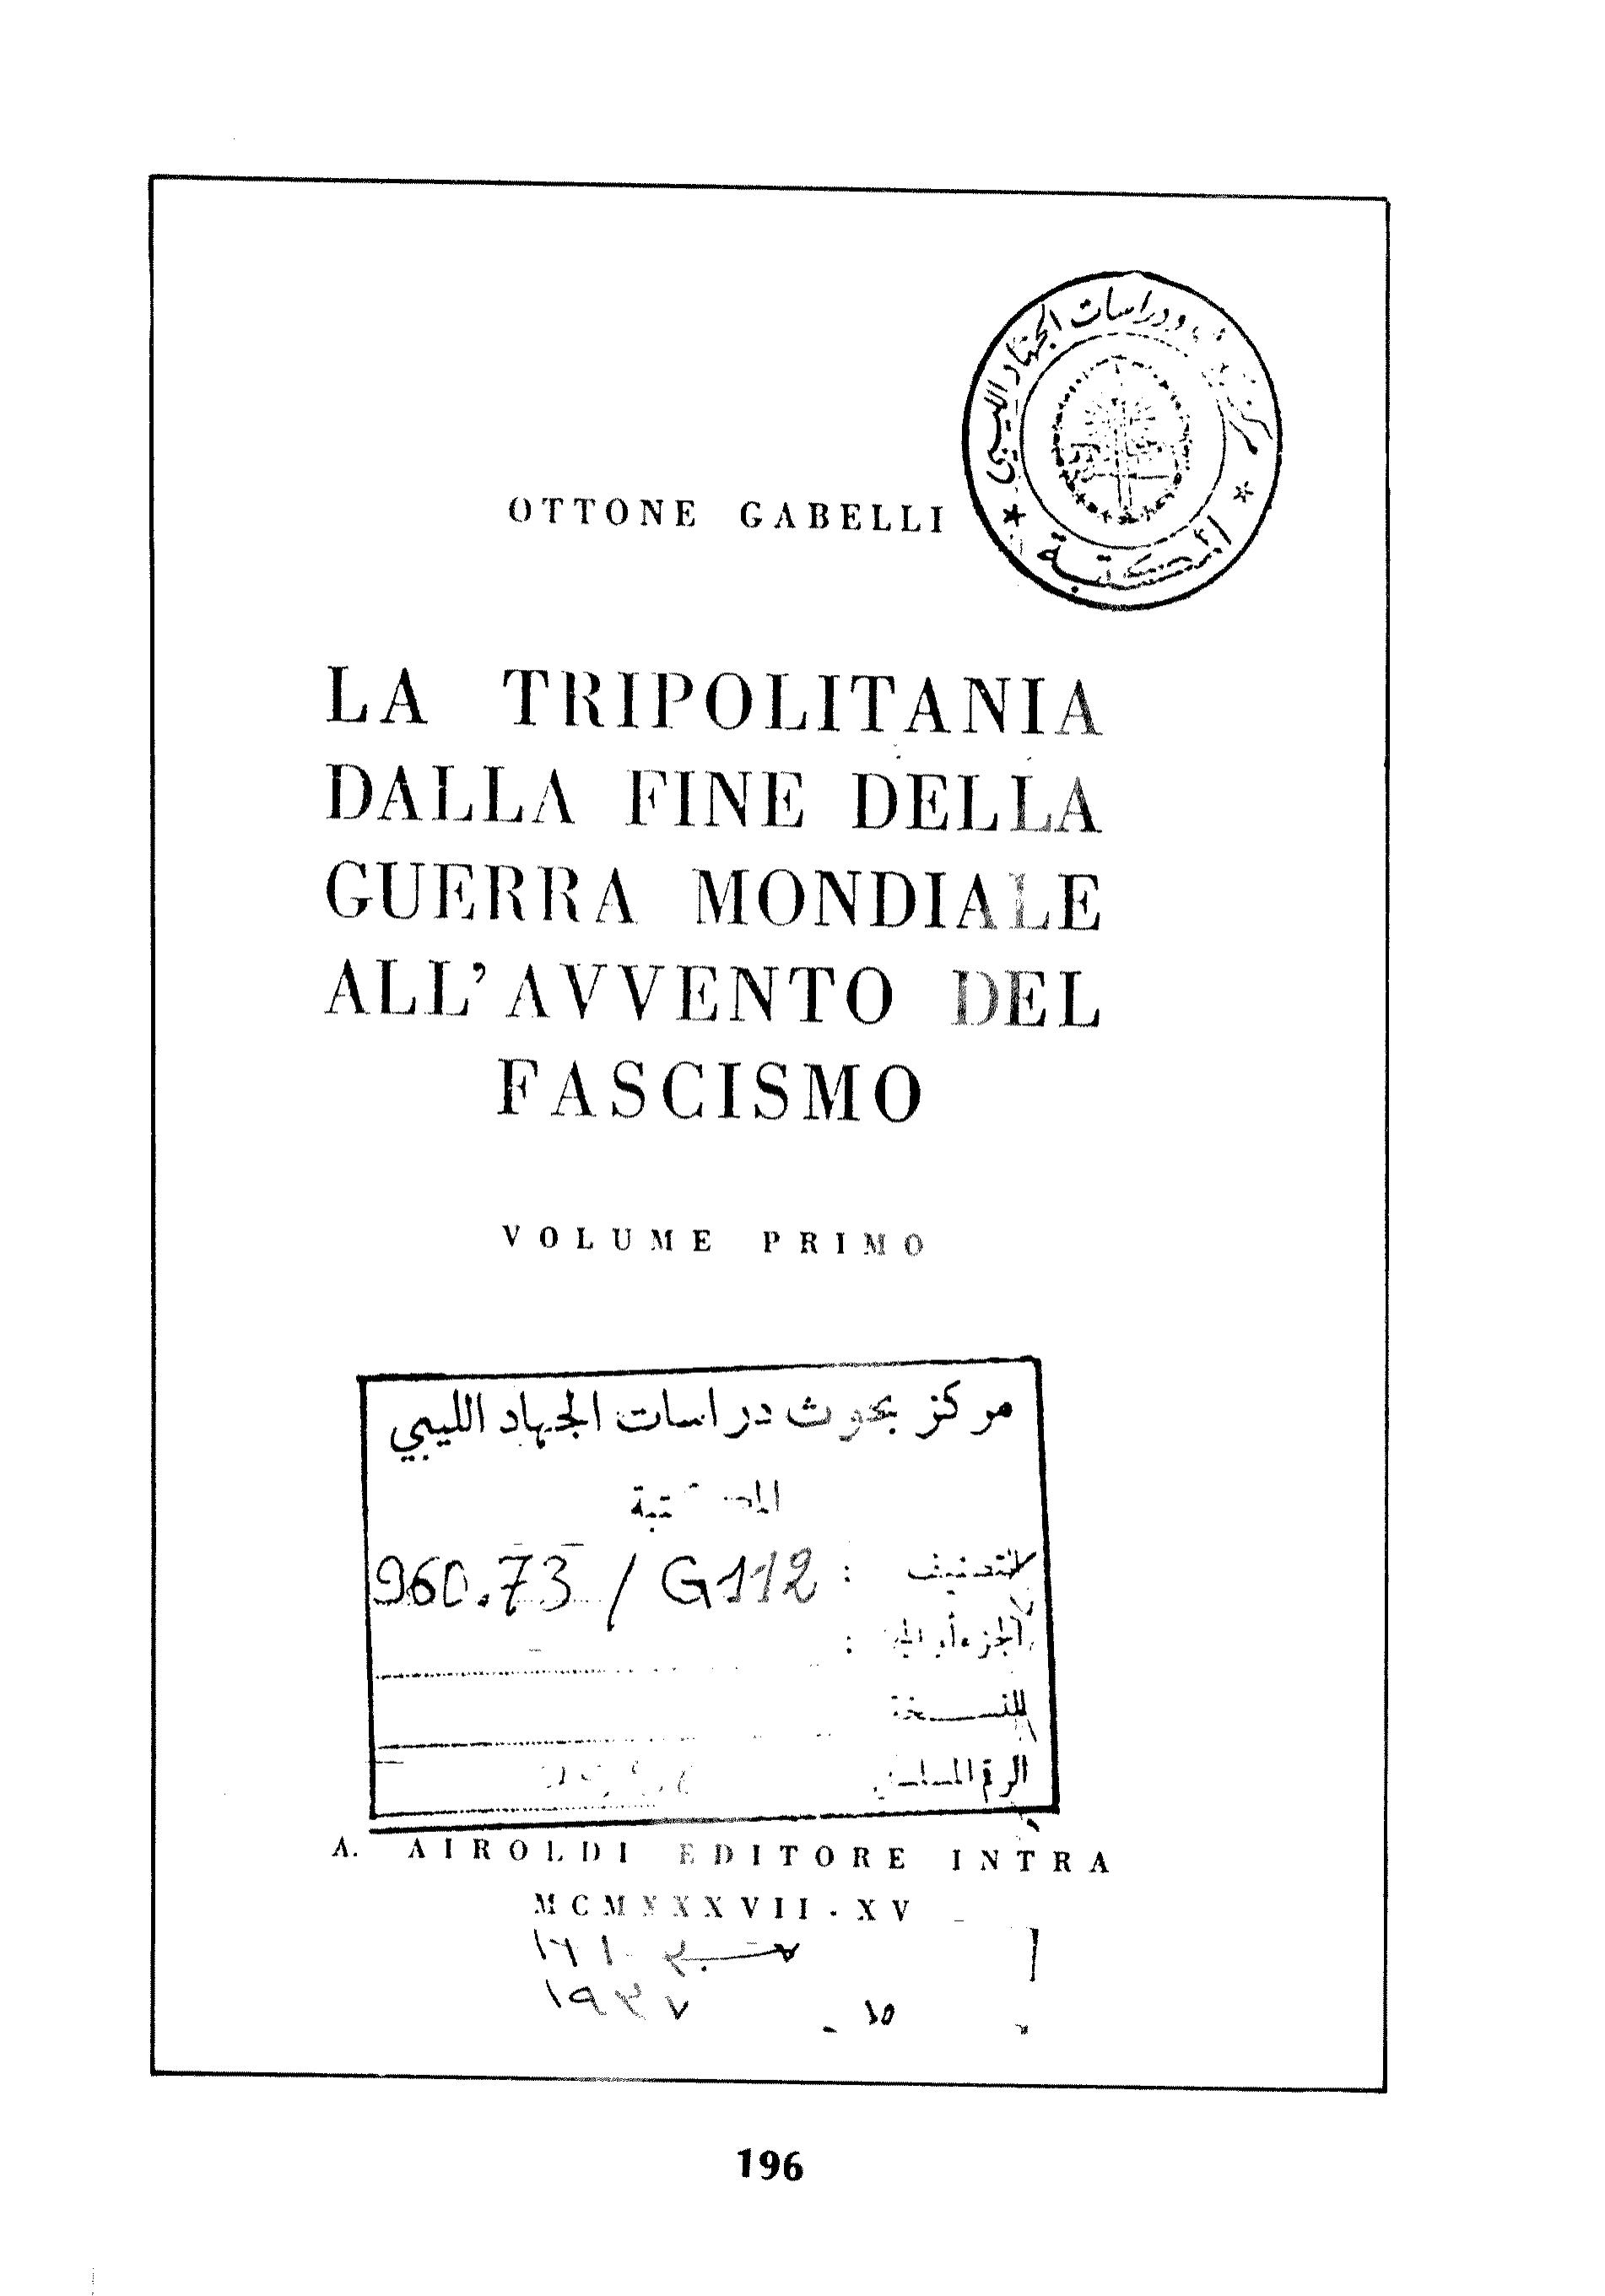 ودراسات الجهاد الليبي
المكتبة
OTTONE GABELLI
LA TRIPOLITANIA
DALLA FINE DELLA
GUERRA MONDIALE
ALL'AVVENTO DEL
FASCISMO
VOLUME PRIMO
مركز بحوث دراسات الجهاد الليبي
المكتبة
التصنيف : 960.73 / G112
الجزء أو :
النسخة
الرقم المسلسل
A. AIROLDI EDITORE INTRA
MCMXXXVII - XV
١٩٣٧ - ١٥
196